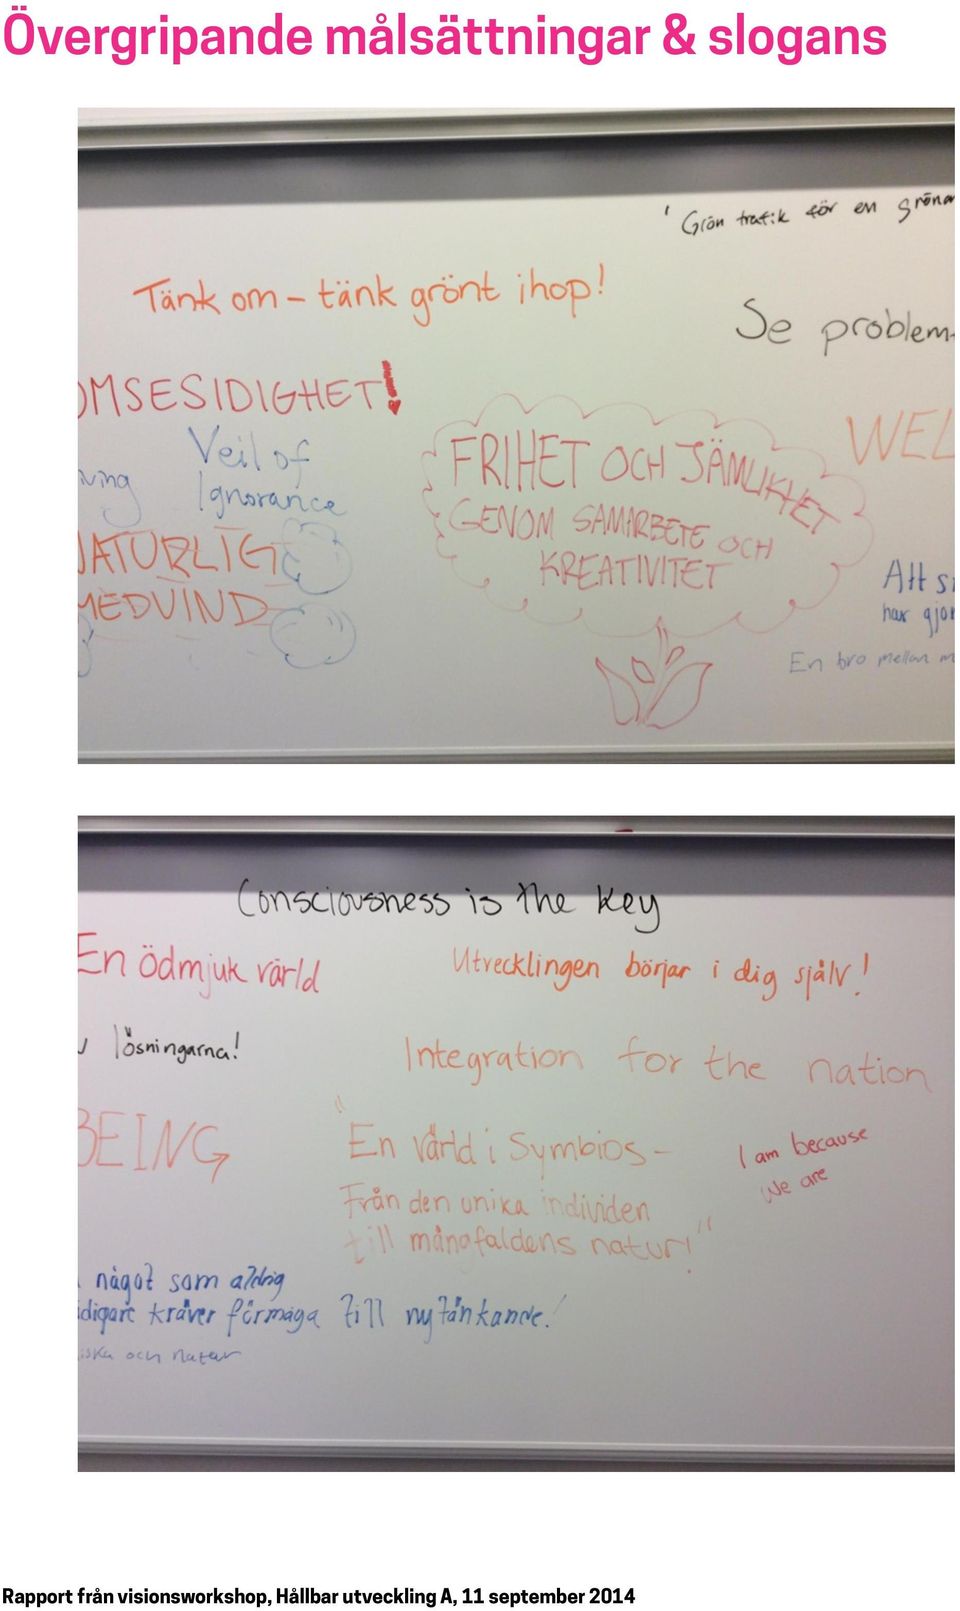 Övergripande målsättningar & slogans
' Grön trafik för en grönar
Tänk om - tänk grönt ihop!
Se problem
OMSESIDIGHET!
WEL
Veil of
Ignorance
FRIHET OCH JÄMLIKHET
GENOM SAMARBETE OCH
KREATIVITET
NATURLIG
MEDVIND
Att s
har gjor
En bro mellan m
Consciousness is the key
En ödmjuk värld
Utvecklingen börjar i dig själv!
lösningarna!
Integration for the nation
BEING
"En värld i Symbios -
Från den unika individen
till mångfaldens natur!"
I am because
We are
något som aldrig
digare kräver förmåga till nytänkande!
iska och natur
Rapport från visionsworkshop, Hållbar utveckling A, 11 september 2014